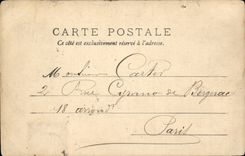 CARTE POSTALE
Ce côté est exclusivement réservé à l'adresse.
Monsieur Carter
2 Rue Cyrano de Bergerac
18 arrond^t
Paris